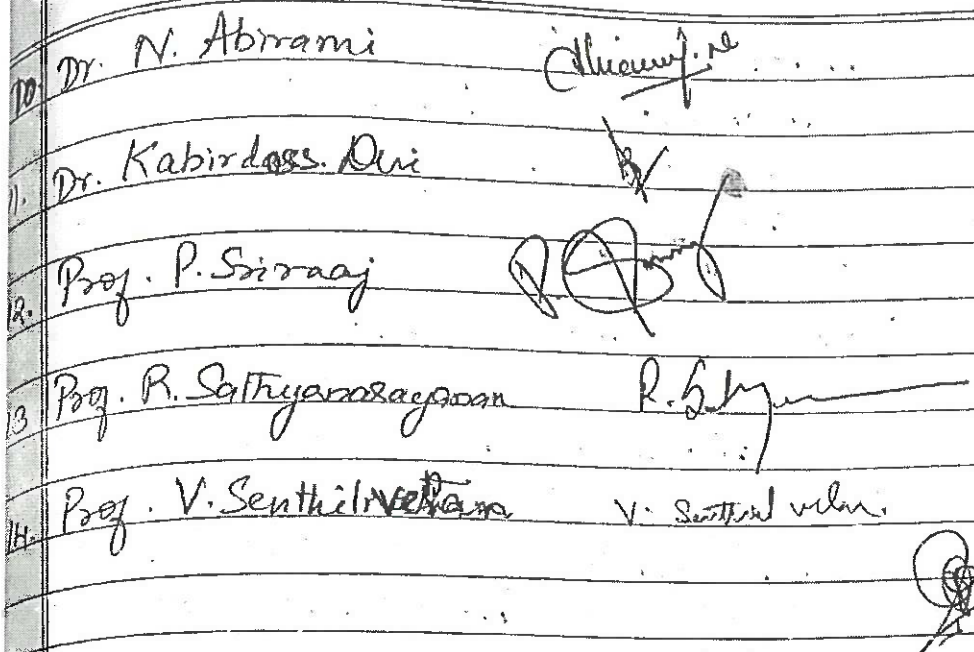 10. Dr. N. Abirami
11. Dr. Kabirdoss. Devi
12. Prof. P. Sriraaj
13 Prof. R. Sathyanarayanan R. Sathy
14. Prof. V. Senthil V. Senthil velan.